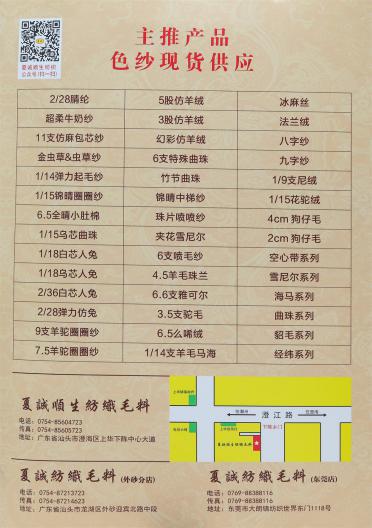 夏誠順生纺织
公众号(扫一扫)
主推产品
色纱现货供应
2/28腈纶 5股仿羊绒 冰麻丝
超柔牛奶纱 3股仿羊绒 法兰绒
11支仿麻包芯纱 幻彩仿羊绒 八字纱
金虫草&虫草纱 6支特殊曲珠 九字纱
1/14弹力起毛纱 竹节曲珠 1/9支尼绒
1/15锦晴圈圈纱 锦晴中梯纱 1/15花驼绒
6.5全晴小肚棉 珠片喷喷纱 4cm 狗仔毛
1/15乌芯曲珠 夹花雪尼尔 2cm 狗仔毛
1/18白芯人兔 6支喷毛纱 空心带系列
1/18乌芯人兔 4.5羊毛珠兰 雪尼尔系列
2/36白芯人兔 6.6支雅可尔 海马系列
2/28弹力仿兔 3.5支驼毛 曲珠系列
9支羊驼圈圈纱 6.5么唏绒 貂毛系列
7.5羊驼圈圈纱 1/14支羊毛马海 经纬系列
夏誠順生紡織毛料
电话：0754-85604723
传真：0754-85605723
地址：广东省汕头市澄海区上华下陈中心大道
往潮州
澄江路
往莲南
下陈乡门
夏誠順生紡織毛料
夏誠紡織毛料(外砂分店)
电话：0754-87213723
传真：0754-87214623
地址：广东省汕头市龙湖区外砂迎宾北路中段
夏誠紡織毛料(东莞店)
电话：0769-88388116
传真：0769-88388116
地址：东莞市大朗镇纺织世界东门1118号